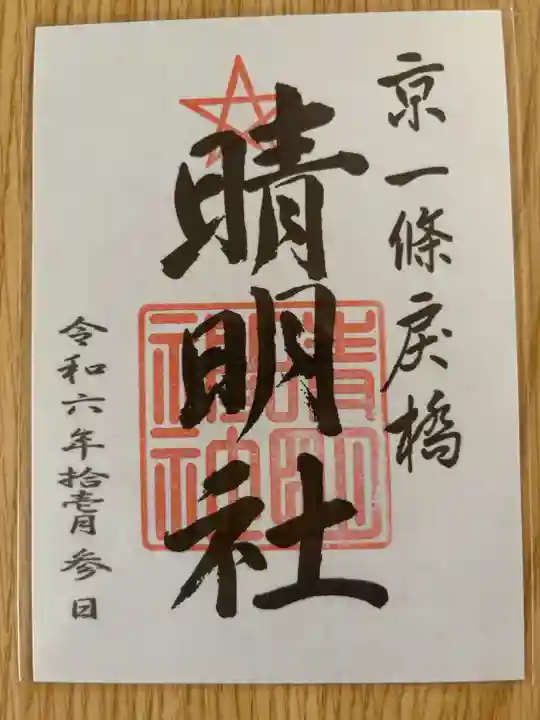 京一條戻橋
晴明社
晴明
神社
令和六年拾壱月参日